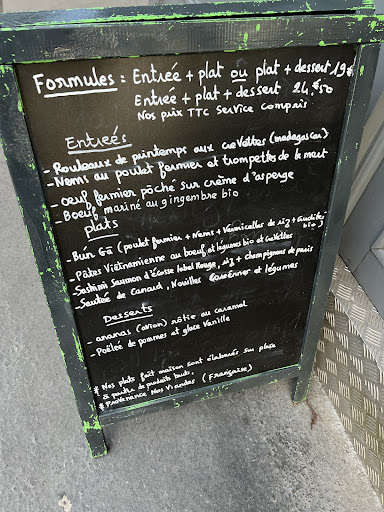 Formules : Entrée + plat ou plat + dessert 19€
Entrée + plat + dessert 24,€50
Nos prix TTC Service compris
Entreés
- Rouleaux de printemps aux creVettes (madagascar)
- Nems au poulet fermier et trompettes de la mort
- oeuf fermier pôché sur crème d'asperge
- Boeuf mariné au gingembre bio
plats
- Bún Gà (poulet fermier + Nems + Vermicelles de riz + Crudités bio)
- Pâtes Vietnamienne au boeuf et légumes bio et creVettes
- Sashimi Saumon d'Écosse label Rouge, riz + champignons de paris
- Sautée de Canard, Nouilles et légumes
Desserts
- ananas (avion) rôtie au caramel
- Poêlée de pommes et glace Vanille
* Nos plats fait maison sont élaborés sur place
à partir de produits bruts.
* ProVenance Nos Viandes (Française)